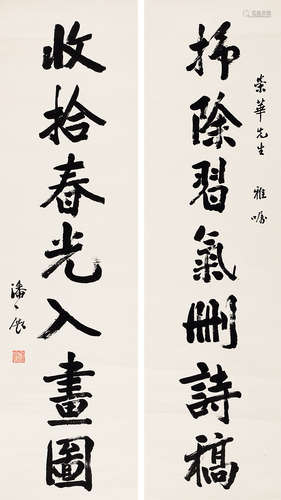 掃除習氣刪詩稿
榮華先生 雅囑
收拾春光入畫圖